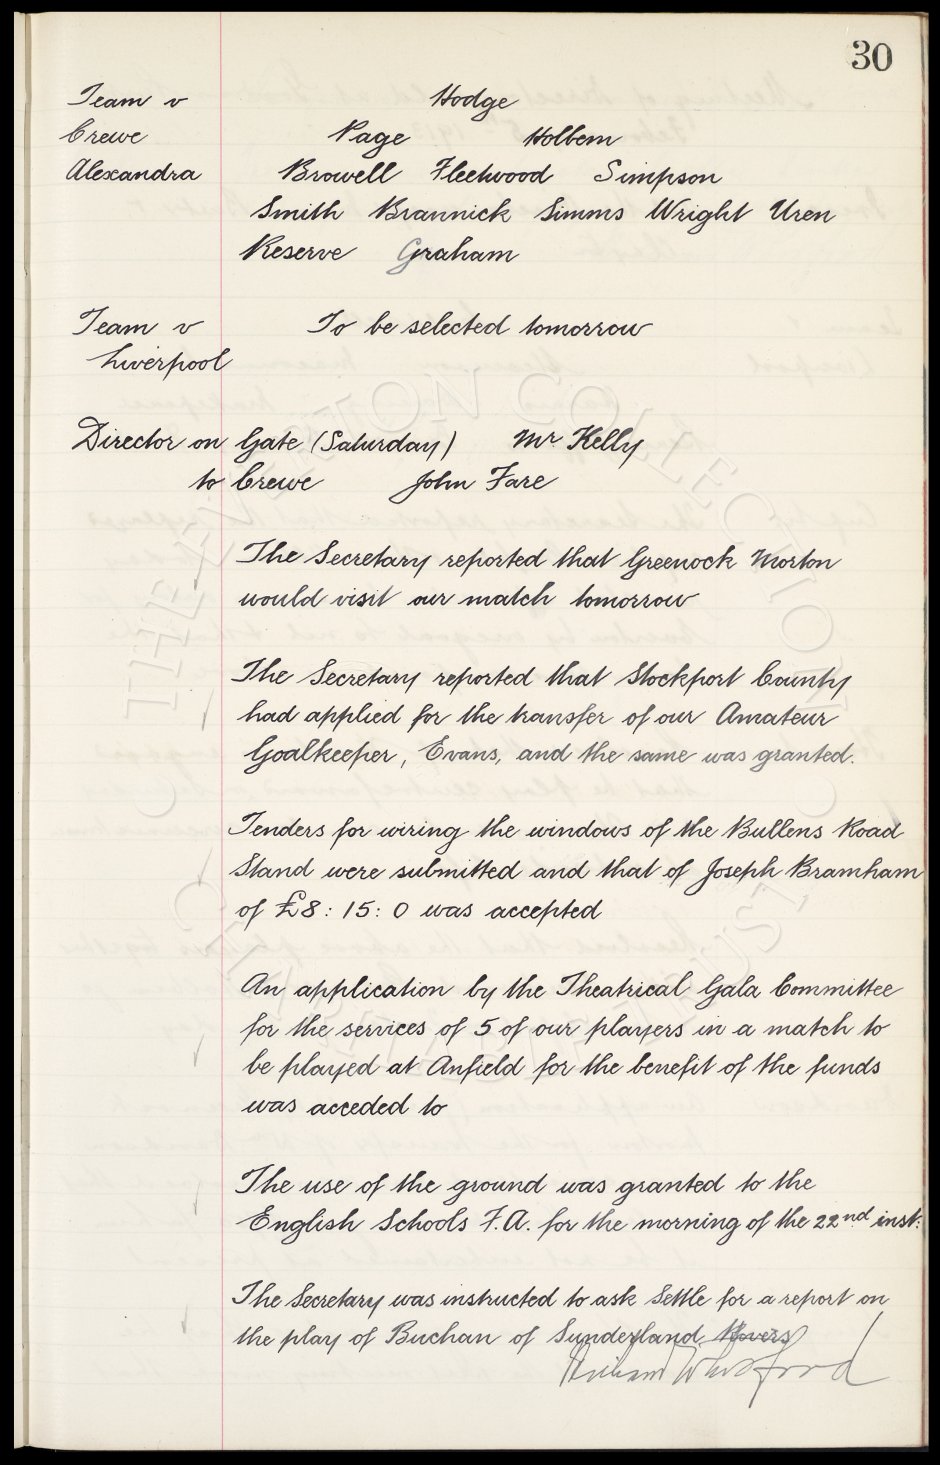 30
Team v Hodge
Crewe Page Holbem
Alexandra Browell Fleetwood Simpson
Smith Brannick Simms Wright Uren
Reserve Graham
Team v To be selected tomorrow
Liverpool
Director on Gate (Saturday) Mr Kelly
to Crewe John Fare
The Secretary reported that Greenock Morton
would visit our match tomorrow
The Secretary reported that Stockport County
had applied for the transfer of our Amateur
Goalkeeper, Evans, and the same was granted.
Tenders for wiring the windows of the Bullens Road
Stand were submitted and that of Joseph Bramham
of £8:15:0 was accepted
An application by the Theatrical Gala Committee
for the services of 5 of our players in a match to
be played at Anfield for the benefit of the funds
was acceded to
The use of the ground was granted to the
English Schools F.A. for the morning of the 22nd inst:
The Secretary was instructed to ask Settle for a report on
the play of Buchan of Sunderland Rovers
THE EVERTON COLLECTION CHARITABLE TRUST